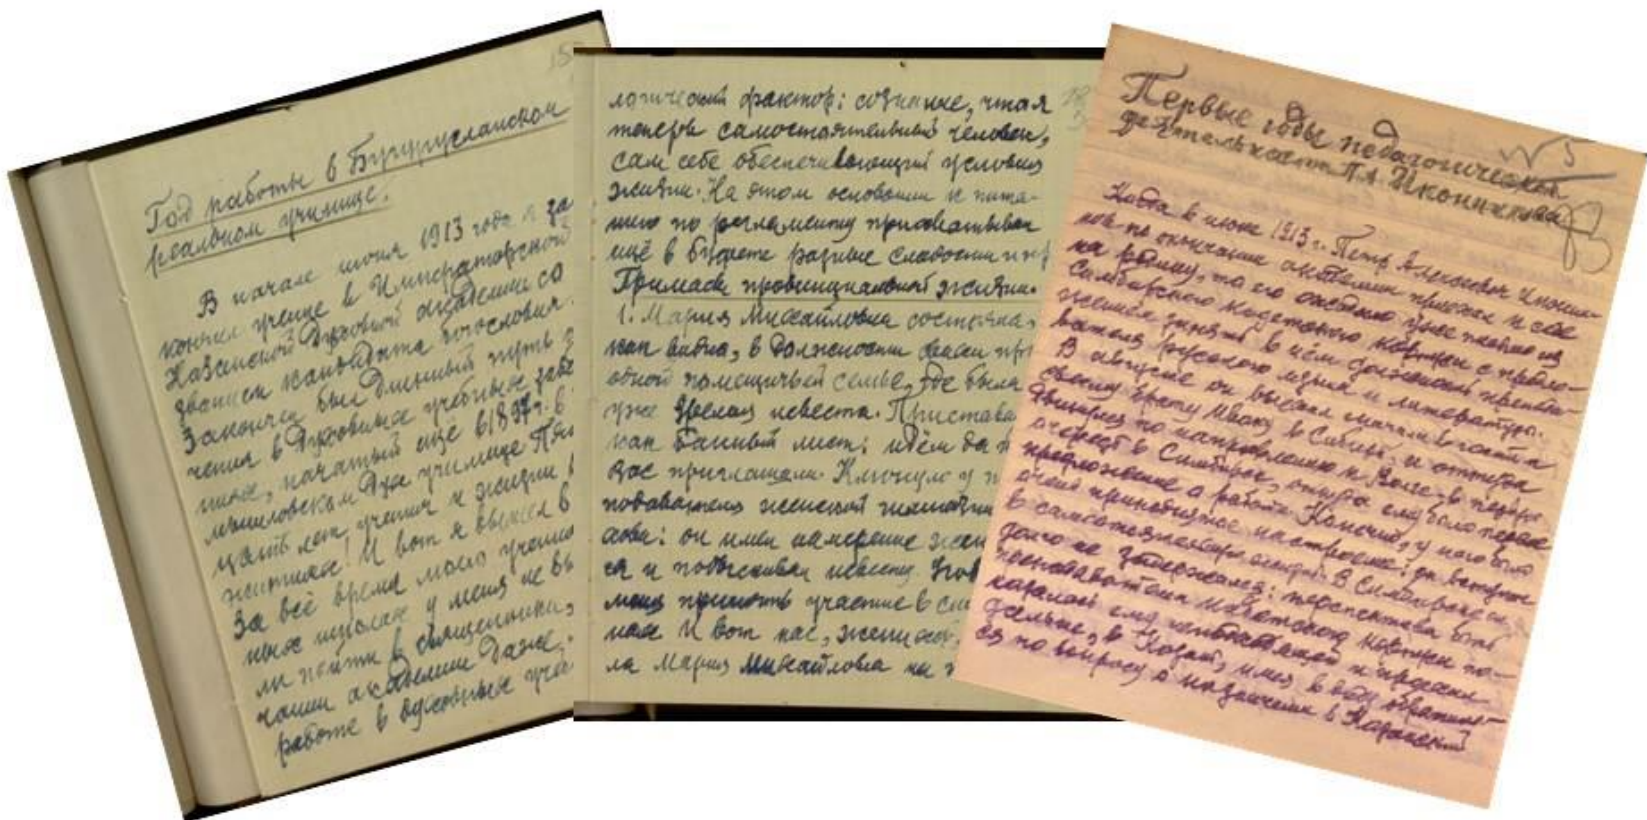 Год работы в Бугурусланском
реальном училище.
В начале июня 1913 года я за
кончил учение в Императорской
Казанской Духовной академии со
званием кандидата богословия.
Закончен был длинный путь
чения в духовных учебных заве
начатый ещё в 1897 г. в
Дух. училище
цать лет учения и жизни
И вот я вышел в
За всё время моего учения
ных школах у меня не
ли пойти в священники,
нашей академии даже
работе в духовных
логический фактор: сознание, что я
теперь самостоятельный человек,
сам себе обеспечивающий условия
жизни. На этом основании к пита-
нию по регламенту прихватывал
ещё в буфете разные сладости и
Гримасы провинциальной жизни.
1. Мария Михайловна состояла,
как видно, в должности свахи при
одной помещичьей семье, где была
уже зрелая невеста. Пристава
как банный лист: идём да
вас приглашали. Клюнуло у
подавателя женской гимназии
он имел намерение жени
ся и подыскивал невесту. Угов
меня принять участие в
И вот нас, женихов,
ла Мария Михайловна на
Первые годы педагогической
деятельности П.А. Иконникова
Когда в июне 1913 г. Петр Алексеевич Иконни-
ков по окончании академии приехал к себе
на родину, то его ожидало уже письмо из
Симбирского кадетского корпуса с предло-
жением занять в нём должность препода-
вателя русского языка и литературы.
В августе он выехал сначала в гости к
своему брату Ивану в Сибирь, и оттуда
двинулся по направлению к Волге, в первую
очередь в Симбирск, откуда ему было первое
предложение о работе. Конечно, у него было
очень приподнятое настроение: он вступал
в самостоятельную жизнь. В Симбирске он
долго не задержался: перспектива быть
преподавателем кадетского корпуса по-
казалась ему
в Казань, имея в виду обратить-
ся по вопросу о назначении в Казанский